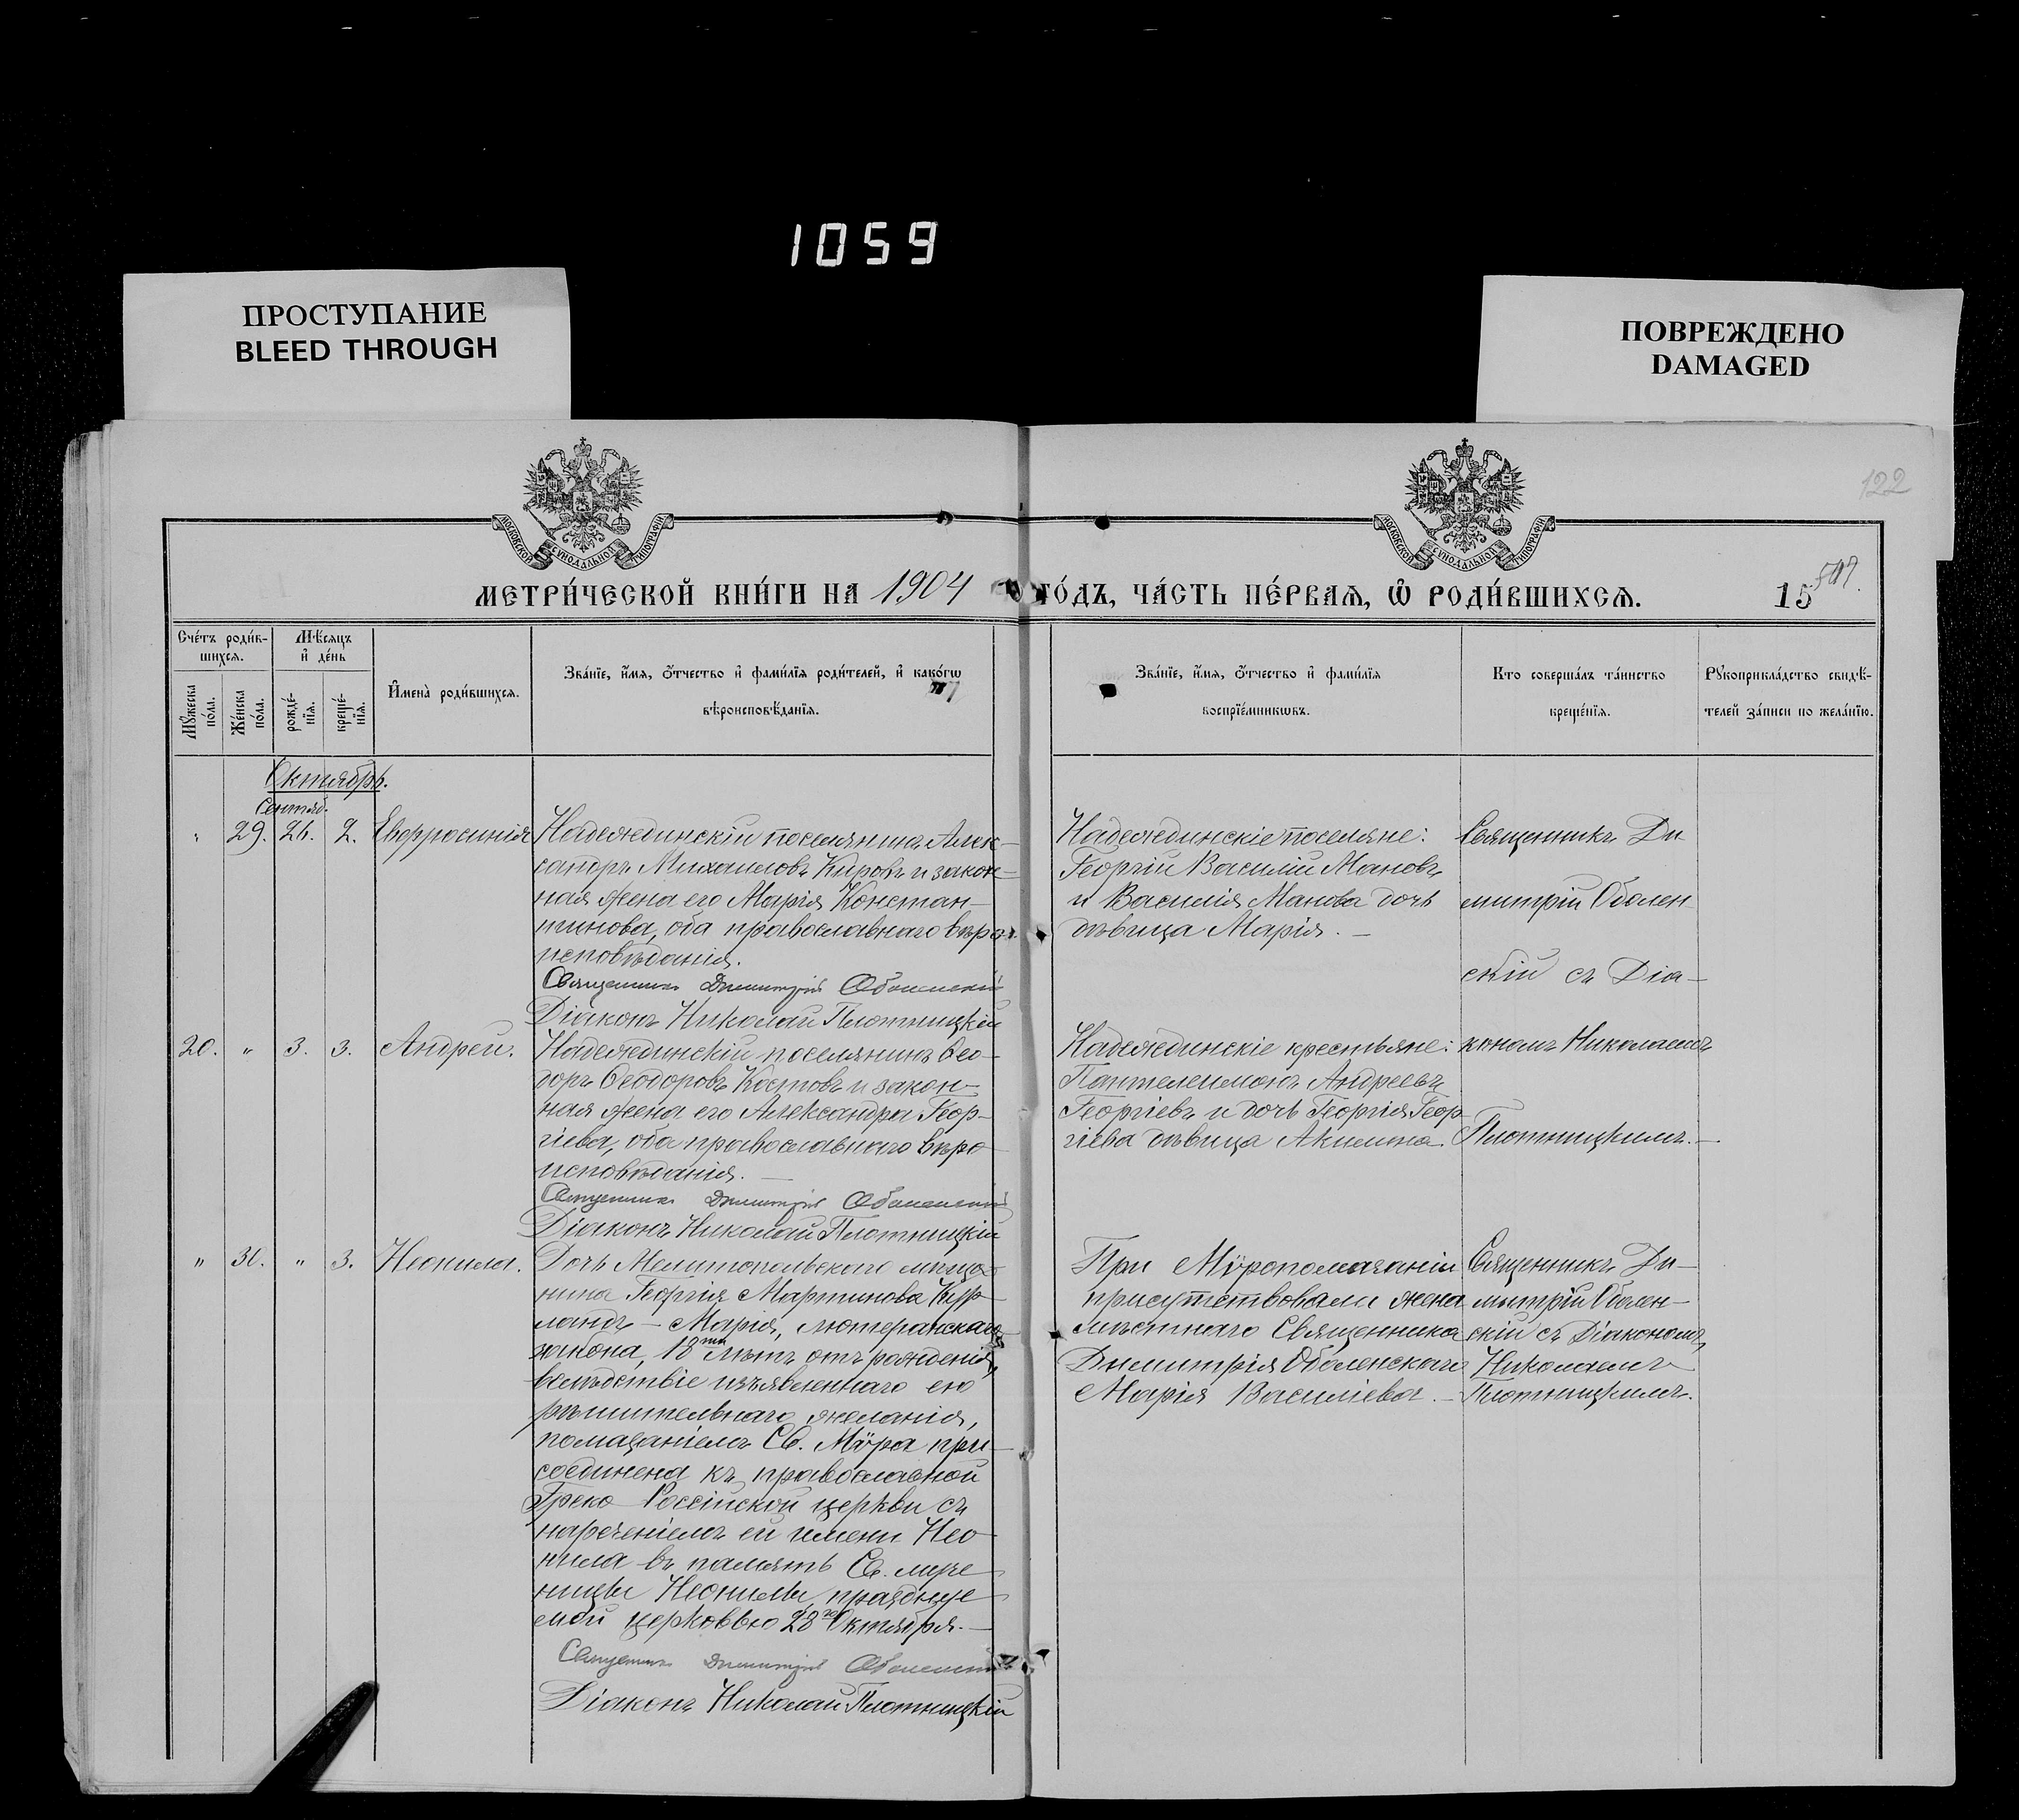 1059
ПРОСТУПАНИЕ
BLEED THROUGH
ПОВРЕЖДЕНО
DAMAGED
122
МОСКОВСКОЙ СУНОДАЛЬНОЙ ТИПОГРАФІИ
МОСКОВСКОЙ СУНОДАЛЬНОЙ ТИПОГРАФІИ
МЕТРИ́ЧЕСКОЙ КНИ́ГИ НА 1904 ГО́ДЪ, ЧА́СТЬ ПЕ́РВАѦ, Ѡ РОДИ́ВШИХСѦ. 15
Сче́тъ роди́в-
шихсѧ.
Мѣ́сѧцъ
и҆ де́нь
Мꙋ́жеска
по́ла.
Же́нска
по́ла.
рожде́-
нїѧ.
креще́-
нїѧ.
И҆мена̀ роди́вшихсѧ.
Зва́нїе, и҆́мѧ, ѻ҆́тчество и҆ фами́лїѧ роди́телей, и҆ како́гѡ
вѣроисповѣ́данїѧ.
Зва́нїе, и҆́мѧ, ѻ҆́тчество и҆ фами́лїѧ
воспрїе́мникѡвъ.
Кто соверша́лъ та́инство
креще́нїѧ.
Рꙋкоприкла́дство свидѣ́-
телей за́писи по жела́нїю.
Октябрь.
Сентяб.
" 29. 26. 2. Евфросинія
Надеждинскій поселянинъ Алек-
сандръ Михаиловъ Кировъ и закон-
ная жена его Марія Констан-
тинова, оба православнаго вѣро-
исповѣданія.
Священникъ Димитрій Оболенскій
Діаконъ Николай Плотницкій
Надеждинскіе поселяне:
Георгій Василій Мановъ
и Василія Манова дочь
дѣвица Марія. —
Священникъ Ди
митрій Оболен
скій съ Діа-
кономъ Николаемъ
Плотницкимъ. —
20. " 3. 3. Андрей.
Надеждинскій поселянинъ Ѳео-
доръ Ѳеодоровъ Костовъ и закон-
ная жена его Александра Геор-
гіева, оба православнаго вѣро
исповѣданія. —
Священникъ Димитрій Оболенскій
Діаконъ Николай Плотницкій
Надеждинскіе крестьяне:
Пантелеимонъ Андреевъ
Георгіевъ и дочь Георгія Геор-
гіева дѣвица Акилина.
" 30. " 3. Неонила.
Дочь Мелитопольскаго мѣща-
нина Георгія Мартинова Кур-
ландъ — Марія, лютеранскаго
закона, 18ти лѣтъ отъ рожденія,
вслѣдствіе изъявленнаго ею
рѣшительнаго желанія,
помазаніемъ Св. Мѵра при-
соединена къ православной
Греко-Россійской церкви съ
нареченіемъ ей имени Нео
нила въ память Св. муче
ницы Неонилы, празднуе
мой церковью 28го Октября. —
Священникъ Димитрій Оболенскій
Діаконъ Николай Плотницкій
При Мѵропомазаніи
присутствовали жена
мѣстнаго Священника
Димитрія Оболенскаго
Марія Василіева. —
Священникъ Ди-
митрій Оболен-
скій съ Діакономъ
Николаемъ
Плотницкимъ.